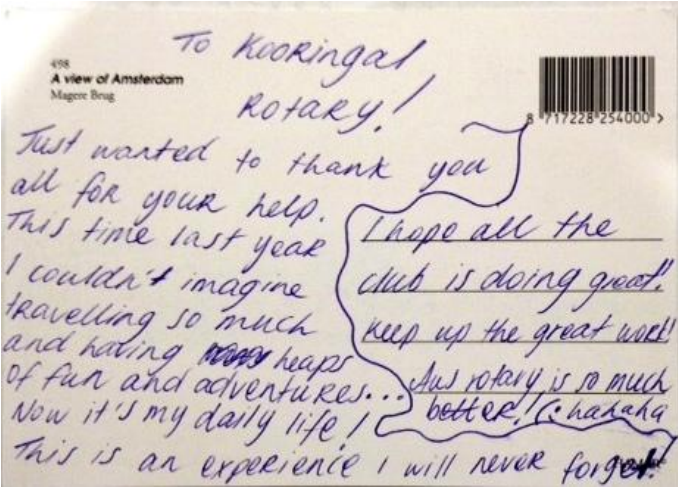 498
A view of Amsterdam
Magere Brug
8 717228 254000 >
To Kooringal
Rotary!
Just wanted to thank you
all for your help.
This time last year
I couldn't imagine
travelling so much
and having heaps
of fun and adventures...
Now it's my daily life!
This is an experience I will never forget!
I hope all the
club is doing great!
Keep up the great work!
Aus rotary is so much
better! (: hahaha